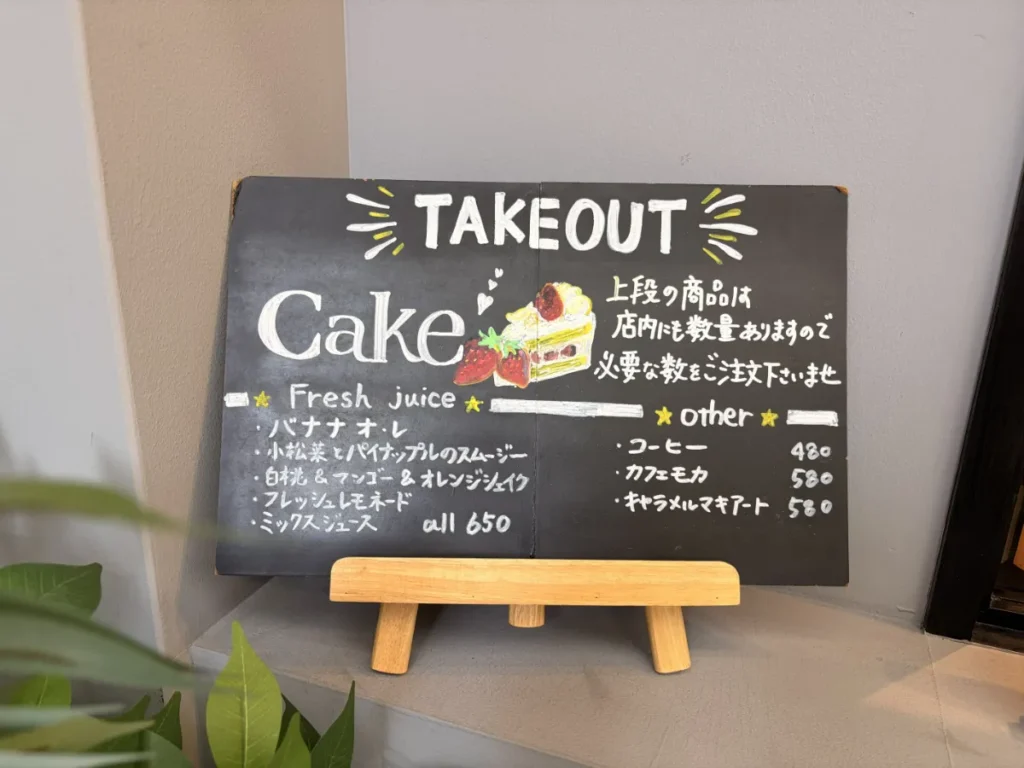 TAKEOUT
Cake
上段の商品は
店内にも数量ありますので
必要な数をご注文下さいませ
Fresh juice
・バナナオ・レ
・小松菜とパイナップルのスムージー
・白桃&マンゴー&オレンジシェイク
・フレッシュレモネード
・ミックスジュース all 650
other
・コーヒー 480
・カフェモカ 580
・キャラメルマキアート 580